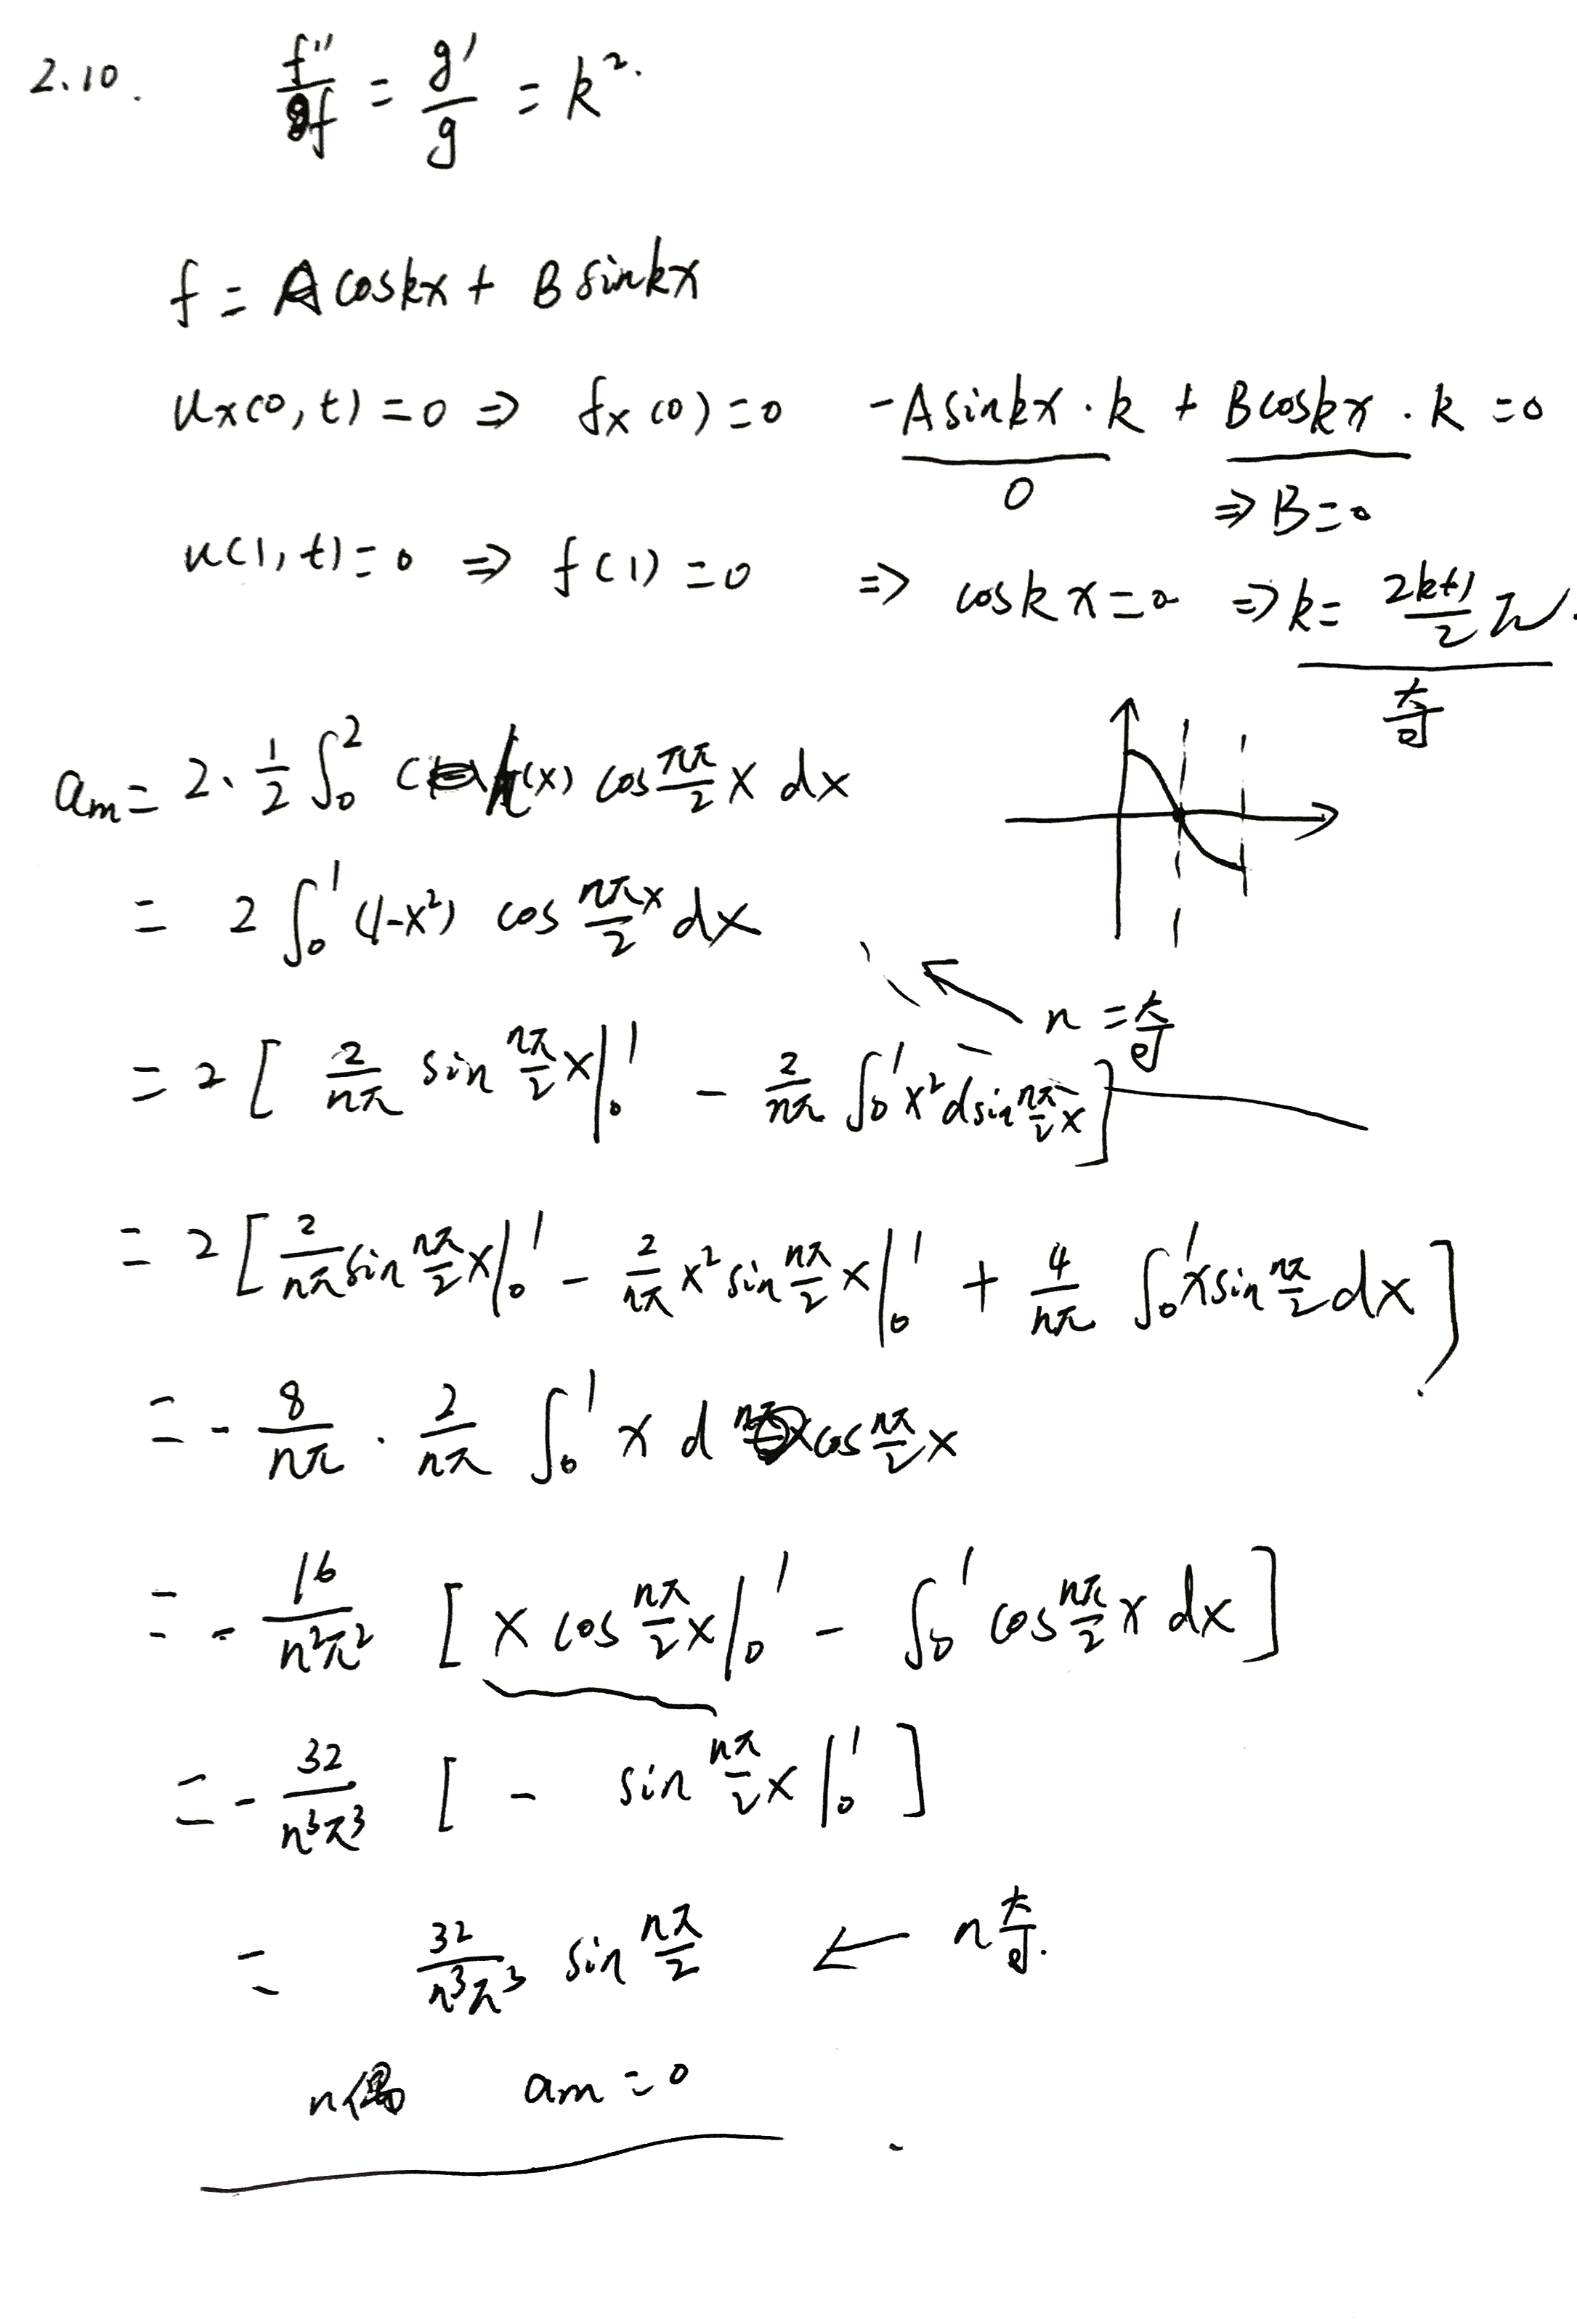 2.10. f''/f = g'/g = k².
f = A cos kx + B sin kx
uₓ(0,t)=0 ⇒ fₓ(0)=0 -A sin kx · k + B cos kx · k = 0
0 ⇒ B=0
u(1,t)=0 ⇒ f(1)=0 ⇒ cos k x=0 ⇒ k= (2k+1)/2 π.
奇
aₘ = 2·1/2 ∫₀² (x) cos nπ/2 x dx
= 2 ∫₀¹ (1-x²) cos nπx/2 dx
n=奇
= 2 [ 2/nπ sin nπ/2 x |₀¹ - 2/nπ ∫₀¹ x² d sin nπ/2 x ]
= 2 [ 2/nπ sin nπ/2 x |₀¹ - 2/nπ x² sin nπ/2 x |₀¹ + 4/nπ ∫₀¹ x sin nπ/2 dx ]
= - 8/nπ · 2/nπ ∫₀¹ x d cos nπ/2 x
= - 16/n²π² [ x cos nπ/2 x |₀¹ - ∫₀¹ cos nπ/2 x dx ]
= - 32/n³π³ [ - sin nπ/2 x |₀¹ ]
= 32/n³π³ sin nπ/2 ← n奇.
n偶 aₘ=0